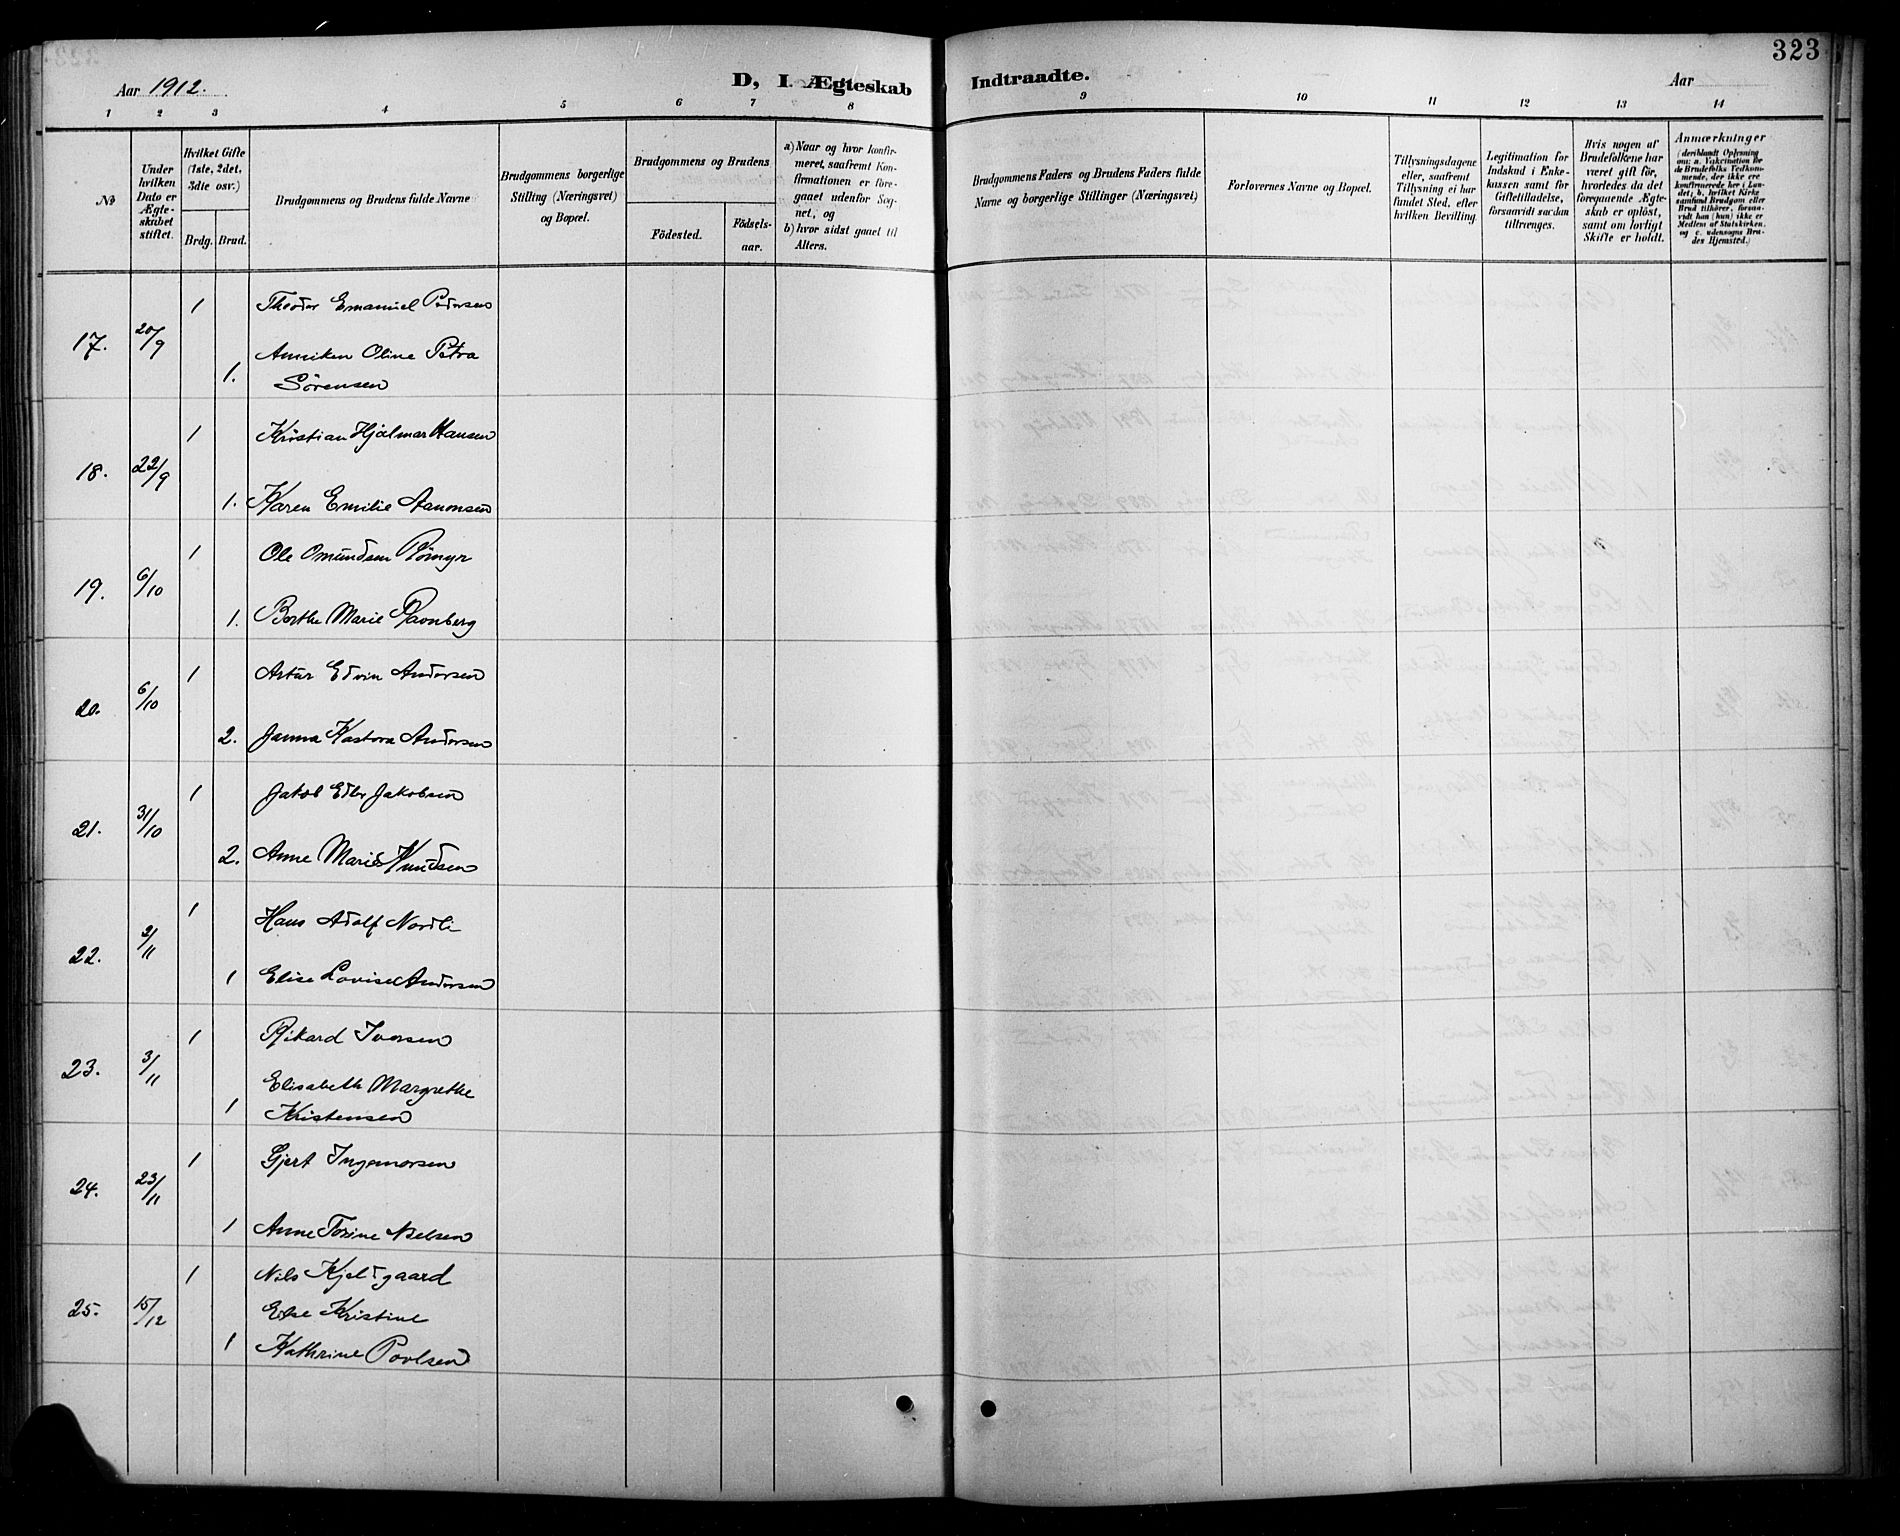 323
Aar 1912.
D, I. Ægteskab Indtraadte.
Aar
1 2 3 4 5 6 7 8 9 10 11 12 13 14
No
Under hvilken Dato er Ægteskabet stiftet.
Hvilket Gifte (1ste, 2det, 3die osv.)
Brdg. Brud.
Brudgommens og Brudens fulde Navne
Brudgommens borgerlige Stilling (Næringsvei) og Bopæl.
Brudgommens og Brudens
Födested.
Födsels-aar.
a) Naar og hvor konfirmeret, saafremt Konfirmationen er foregaaet udenfor Sognet, og
b) hvor sidst gaaet til Alters.
Brudgommens Faders og Brudens Faders fulde Navne og borgerlige Stillinger (Næringsvei)
Forlovernes Navne og Bopæl.
Tillysningsdagene eller, saafremt Tillysning ei har fundet Sted, efter hvilken Bevilling.
Legitimation for Indskud i Enkekassen samt for Giftetilladelse, forsaavidt saadan tiltrænges.
Hvis nogen af Brudefolkene har været gift för, hvorledes da det foregaaende Ægteskab er oplöst, samt om lovligt Skifte er holdt.
Anmærkninger
(deriblandt Oplysning om: a. Vakcination for de Brudefolks Vedkommende, der ikke ere konfirmerede her i Landet; b. hvilket Kirkesamfund Brudgom eller Brud tilhörer, forsaavidt han (hun) ikke er Medlem af Statskirken, og c. udensogns Brudes Hjemsted.)
17. 20/9 1 Theodor Emanuel Pedersen
1. Anniken Oline Petra
Sörensen
18. 22/9 1 Kristian Hjalmar Hansen
1. Karen Emilie Aanonsen
19. 6/10 1 Ole Omundsen Römyr
1. Berthe Marie Ravnberg
20. 6/10 1 Artur Edvin Andersen
2. Janna Kastora Andersen
21. 31/10 1 Jakob Edler Jakobsen
2. Anne Marie Knudsen
22. 2/11 1 Hans Adolf Nordli
1 Elise Lovise Andersen
23. 3/11 1 Rikard Iversen
Elisabeth Margrethe
1 Kristensen
24. 23/11 1 Gjert Ingemorsen
1 Anne Torine Nielsen
25. 15/12 1 Nils Kjeldgaard
Else Kristine
1 Kathrine Poulsen